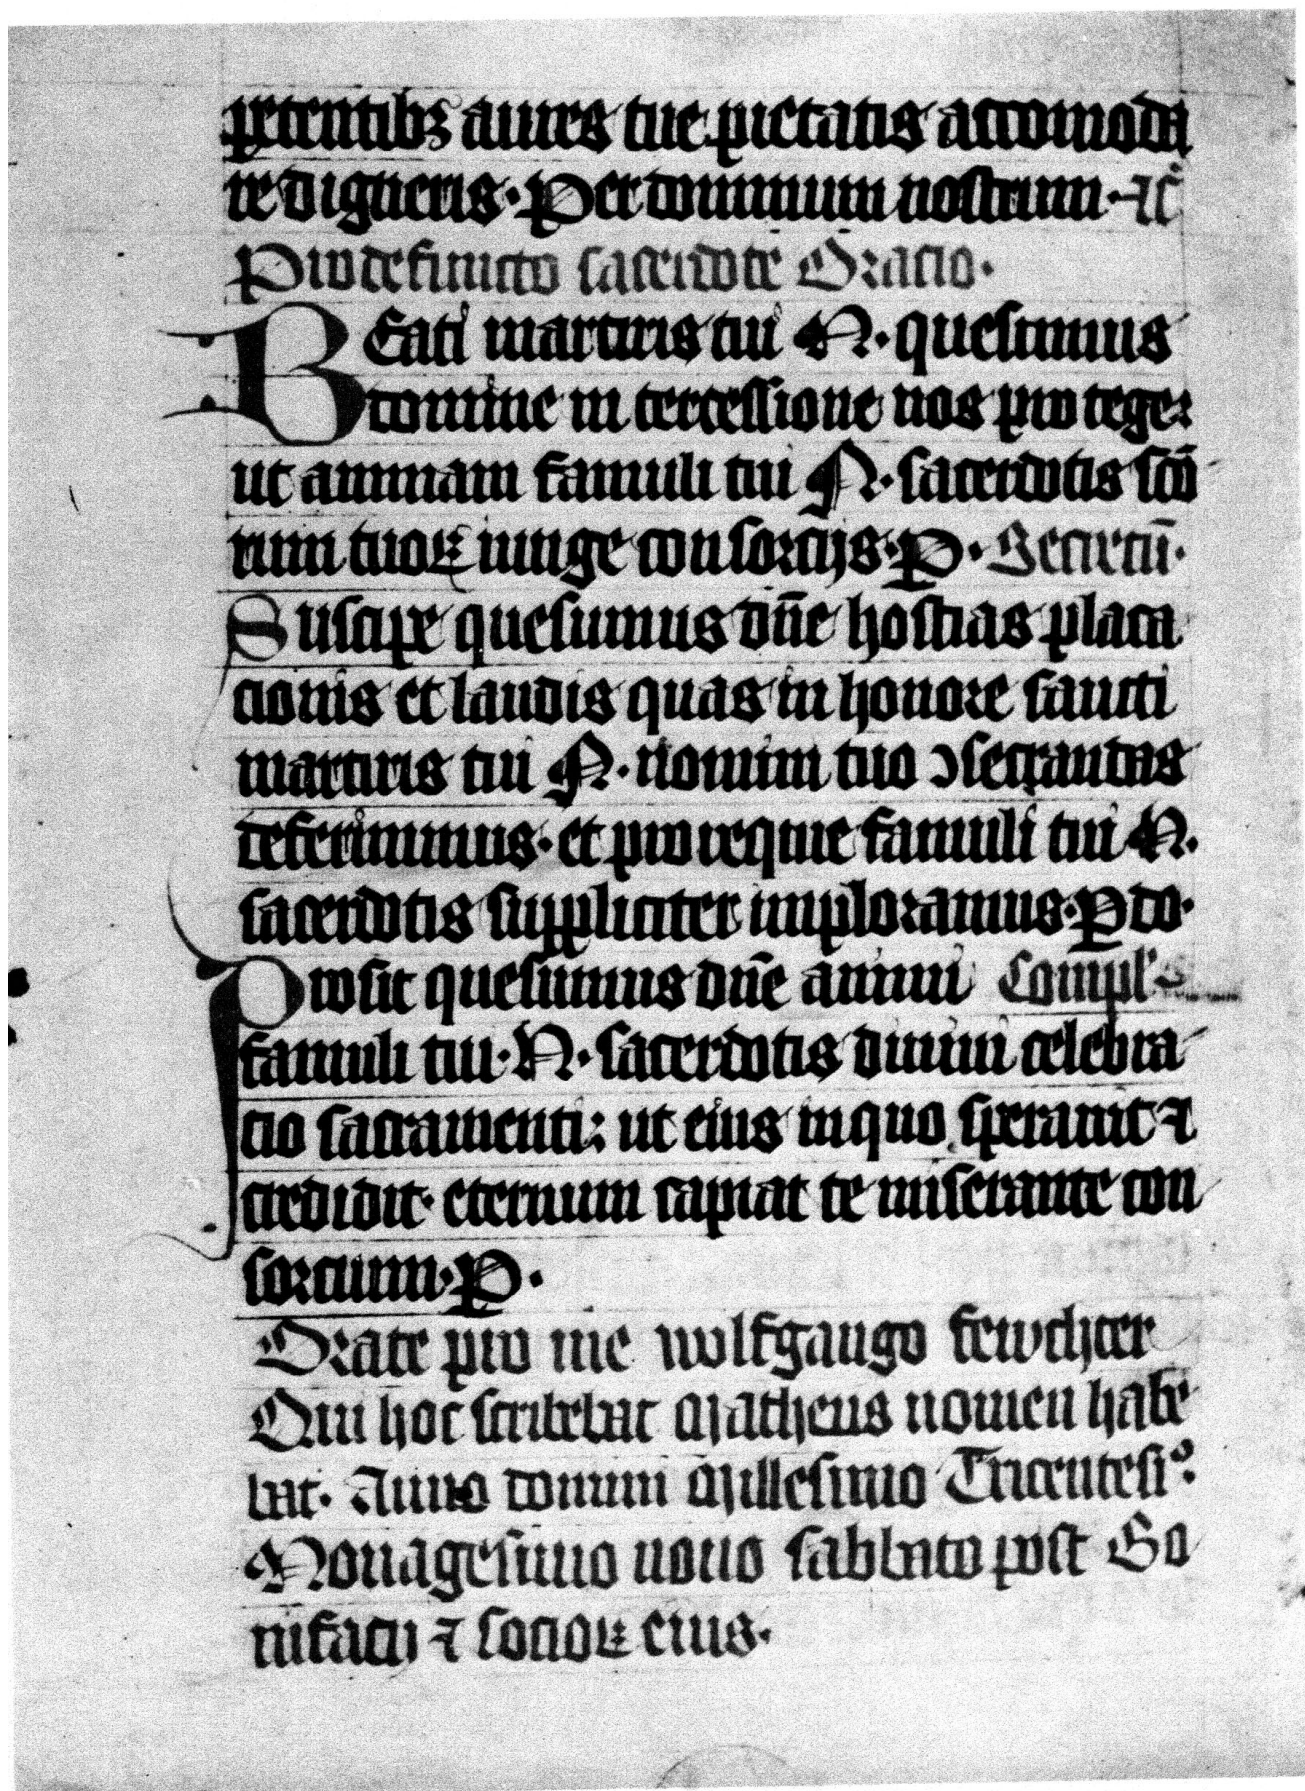 petentibꝫ aures tue pietatis accomoda
re digneris · Per dominum nostrum · ⁊c̄
Pro defuncto sacerdote Oracio ·
BEati martiris tui N · quesumus
domine in tercessione nos protege:
ut animam famuli tui N · sacerdotis sc̄o
rum tuoꝝ iunge con sorcijs · P · Secretū ·
Suscipe quesumus dn̄e hostias placa
cionis et laudis quas in honore sancti
martiris tui N · nomini tuo ↄsecrandas
deferimmus · et pro requie famuli tui N ·
sacerdotis suppliciter imploramus · P do ·
Prosit quesumus dn̄e animi Compl
famuli tui · N · sacerdotis diuini celebra
cio sacramenti: ut eius in quo sperauit ⁊
credidit · eternum capiat te miserante con
sorcium · P ·
Orate pro me wolfgango fewchter
Qui hoc scribebat Matheus nomen habe
bat · Anno domini Millesimo Tricentesiº ·
Nonagesimo nono sabbato post Bo
nifacij ⁊ socioꝝ eius ·